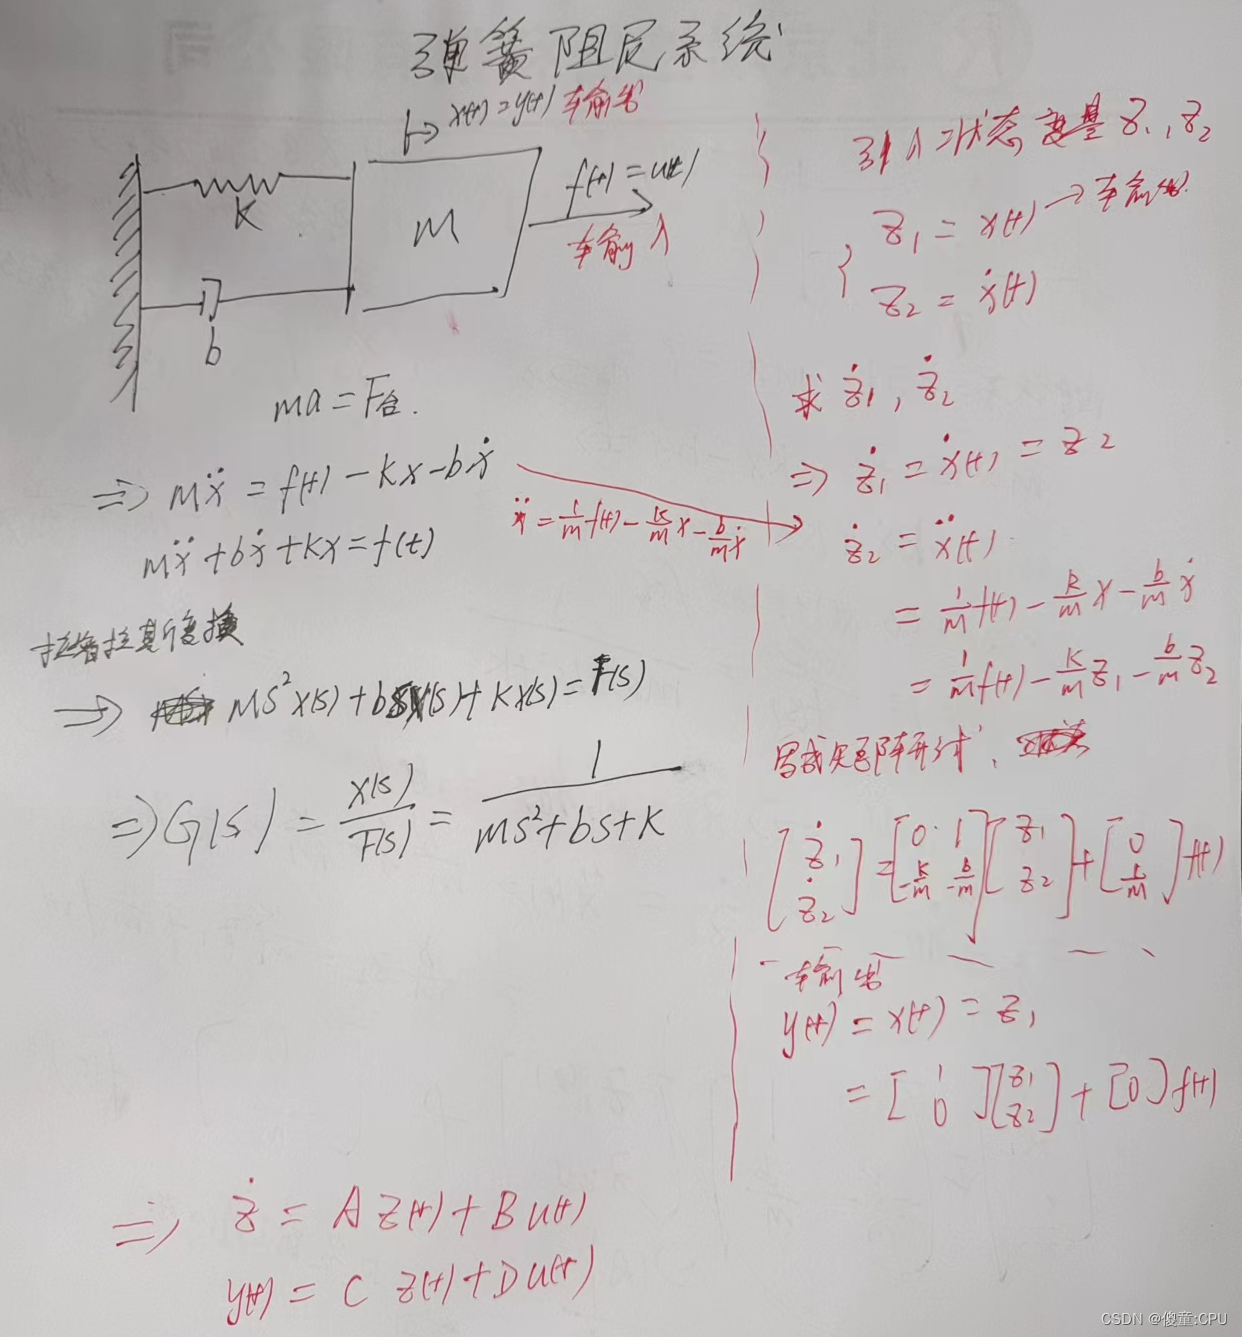 弹簧阻尼系统
x(t)=y(t) 输出
K
M
f(t)=u(t)
输入
b
ma=F合.
⇒ mẍ = f(t) - kx - bẋ
mẍ + bẋ + kx = f(t)
拉普拉斯变换
⇒ MS²X(s) + bSX(s) + KX(s) = F(s)
⇒ G(s) = X(s)/F(s) = 1/(MS²+bS+K)
ẍ = 1/m f(t) - k/m x - b/m ẋ
引入状态变量 Z₁, Z₂
{ Z₁ = x(t) → 输出
Z₂ = ẋ(t)
求 ż₁, ż₂
⇒ ż₁ = ẋ(t) = z₂
ż₂ = ẍ(t)
= 1/m f(t) - k/m x - b/m ẋ
= 1/m f(t) - k/m z₁ - b/m z₂
写成矩阵形式、
[ż₁ ; ż₂] = [0 1 ; -k/m -b/m] [z₁ ; z₂] + [0 ; 1/m] f(t)
输出
y(t) = x(t) = z₁
= [1 ; 0] [z₁ ; z₂] + [0] f(t)
⇒ ż = A Z(t) + B u(t)
y(t) = C Z(t) + D u(t)
CSDN @傻童:CPU